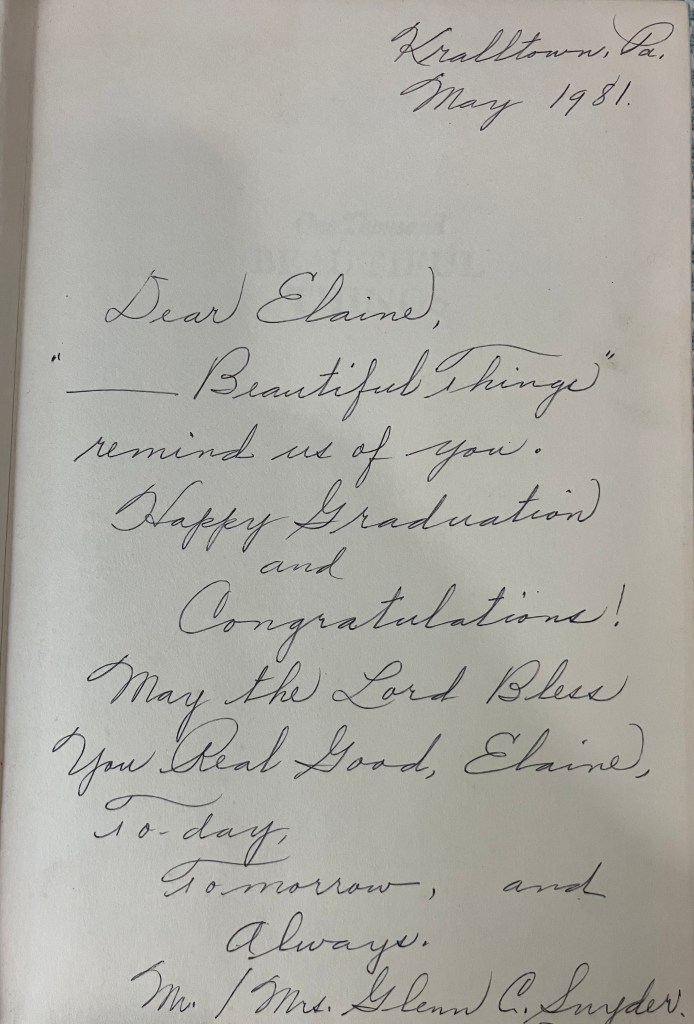 Kralltown, Pa.
May 1981.
One Thousand
BEAUTIFUL
THINGS
Dear Elaine,
"____ Beautiful Things"
remind us of you.
Happy Graduation
and
Congratulations!
May the Lord Bless
You Real Good, Elaine,
To-day,
Tomorrow, and
Always.
Mr. / Mrs. Glenn C. Snyder.